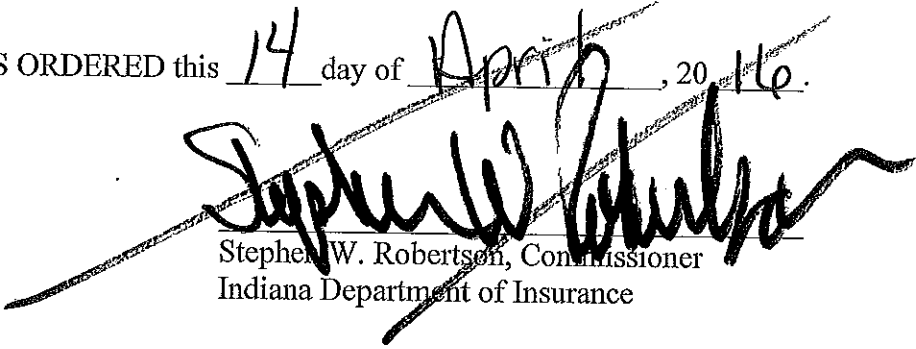 S ORDERED this 14 day of April, 2016.
Stephen W. Robertson
Stephen W. Robertson, Commissioner
Indiana Department of Insurance